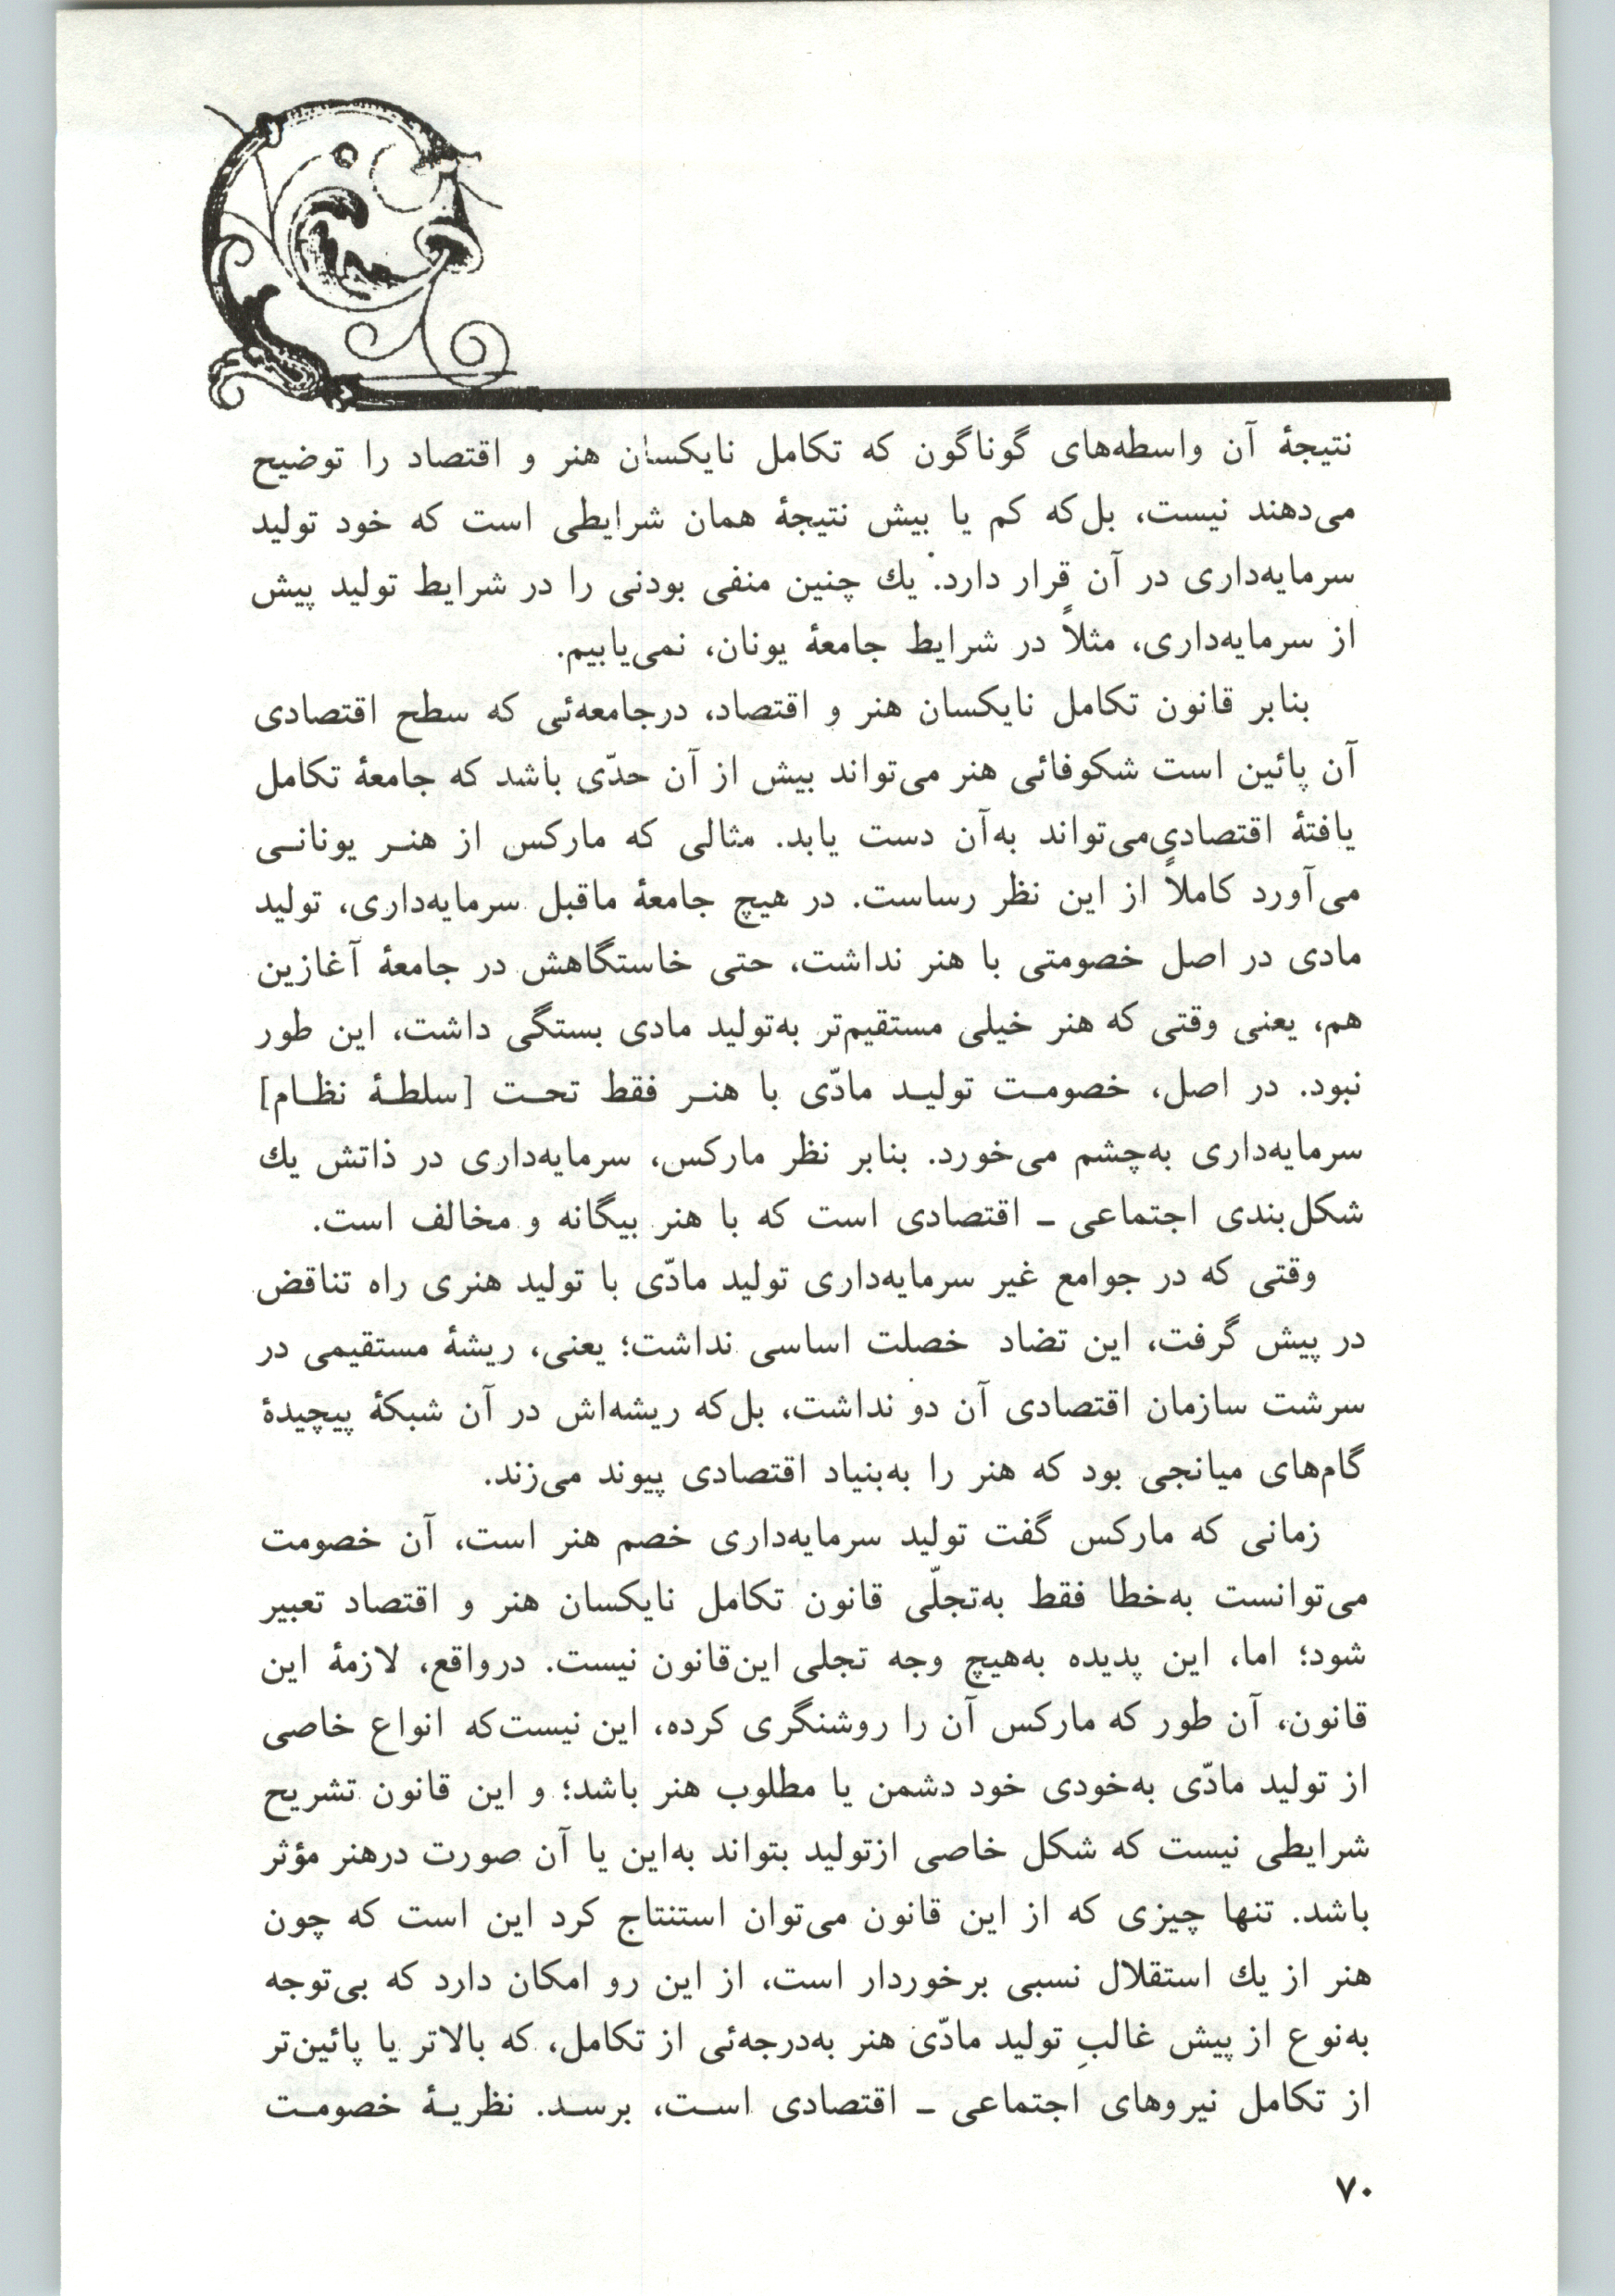 نتیجهٔ آن واسطه‌های گوناگون که تکامل نایکسان هنر و اقتصاد را توضیح
می‌دهند نیست، بل‌که کم یا بیش نتیجهٔ همان شرایطی است که خود تولید
سرمایه‌داری در آن قرار دارد. یك چنین منفی بودنی را در شرایط تولید پیش
از سرمایه‌داری، مثلاً در شرایط جامعهٔ یونان، نمی‌یابیم.
بنابر قانون تکامل نایکسان هنر و اقتصاد، درجامعه‌ئی که سطح اقتصادی
آن پائین است شکوفائی هنر می‌تواند بیش از آن حدّی باشد که جامعهٔ تکامل
یافتهٔ اقتصادی‌می‌تواند به‌آن دست یابد. مثالی که مارکس از هنـر یونانـی
می‌آورد کاملاً از این نظر رساست. در هیچ جامعهٔ ماقبل سرمایه‌داری، تولید
مادی در اصل خصومتی با هنر نداشت، حتی خاستگاهش در جامعهٔ آغازین
هم، یعنی وقتی که هنر خیلی مستقیم‌تر به‌تولید مادی بستگی داشت، این طور
نبود. در اصل، خصومـت تولیـد مادّی با هنـر فقط تحـت [سلطـهٔ نظـام]
سرمایه‌داری به‌چشم می‌خورد. بنابر نظر مارکس، سرمایه‌داری در ذاتش یك
شکل‌بندی اجتماعی ـ اقتصادی است که با هنر بیگانه و مخالف است.
وقتی که در جوامع غیر سرمایه‌داری تولید مادّی با تولید هنری راه تناقض
در پیش گرفت، این تضاد خصلت اساسی نداشت؛ یعنی، ریشهٔ مستقیمی در
سرشت سازمان اقتصادی آن دو نداشت، بل‌که ریشه‌اش در آن شبکهٔ پیچیدهٔ
گام‌های میانجی بود که هنر را به‌بنیاد اقتصادی پیوند می‌زند.
زمانی که مارکس گفت تولید سرمایه‌داری خصم هنر است، آن خصومت
می‌توانست به‌خطا فقط به‌تجلّی قانون تکامل نایکسان هنر و اقتصاد تعبیر
شود؛ اما، این پدیده به‌هیچ وجه تجلی این‌قانون نیست. درواقع، لازمهٔ این
قانون، آن طور که مارکس آن را روشنگری کرده، این نیست‌که انواع خاصی
از تولید مادّی به‌خودی خود دشمن یا مطلوب هنر باشد؛ و این قانون تشریح
شرایطی نیست که شکل خاصی ازتولید بتواند به‌این یا آن صورت درهنر مؤثر
باشد. تنها چیزی که از این قانون می‌توان استنتاج کرد این است که چون
هنر از یك استقلال نسبی برخوردار است، از این رو امکان دارد که بی‌توجه
به‌نوع از پیش غالبِ تولید مادّی هنر به‌درجه‌ئی از تکامل، که بالاتر یا پائین‌تر
از تکامل نیروهای اجتماعی ـ اقتصادی اسـت، برسـد. نظریـهٔ خصومـت
۷۰